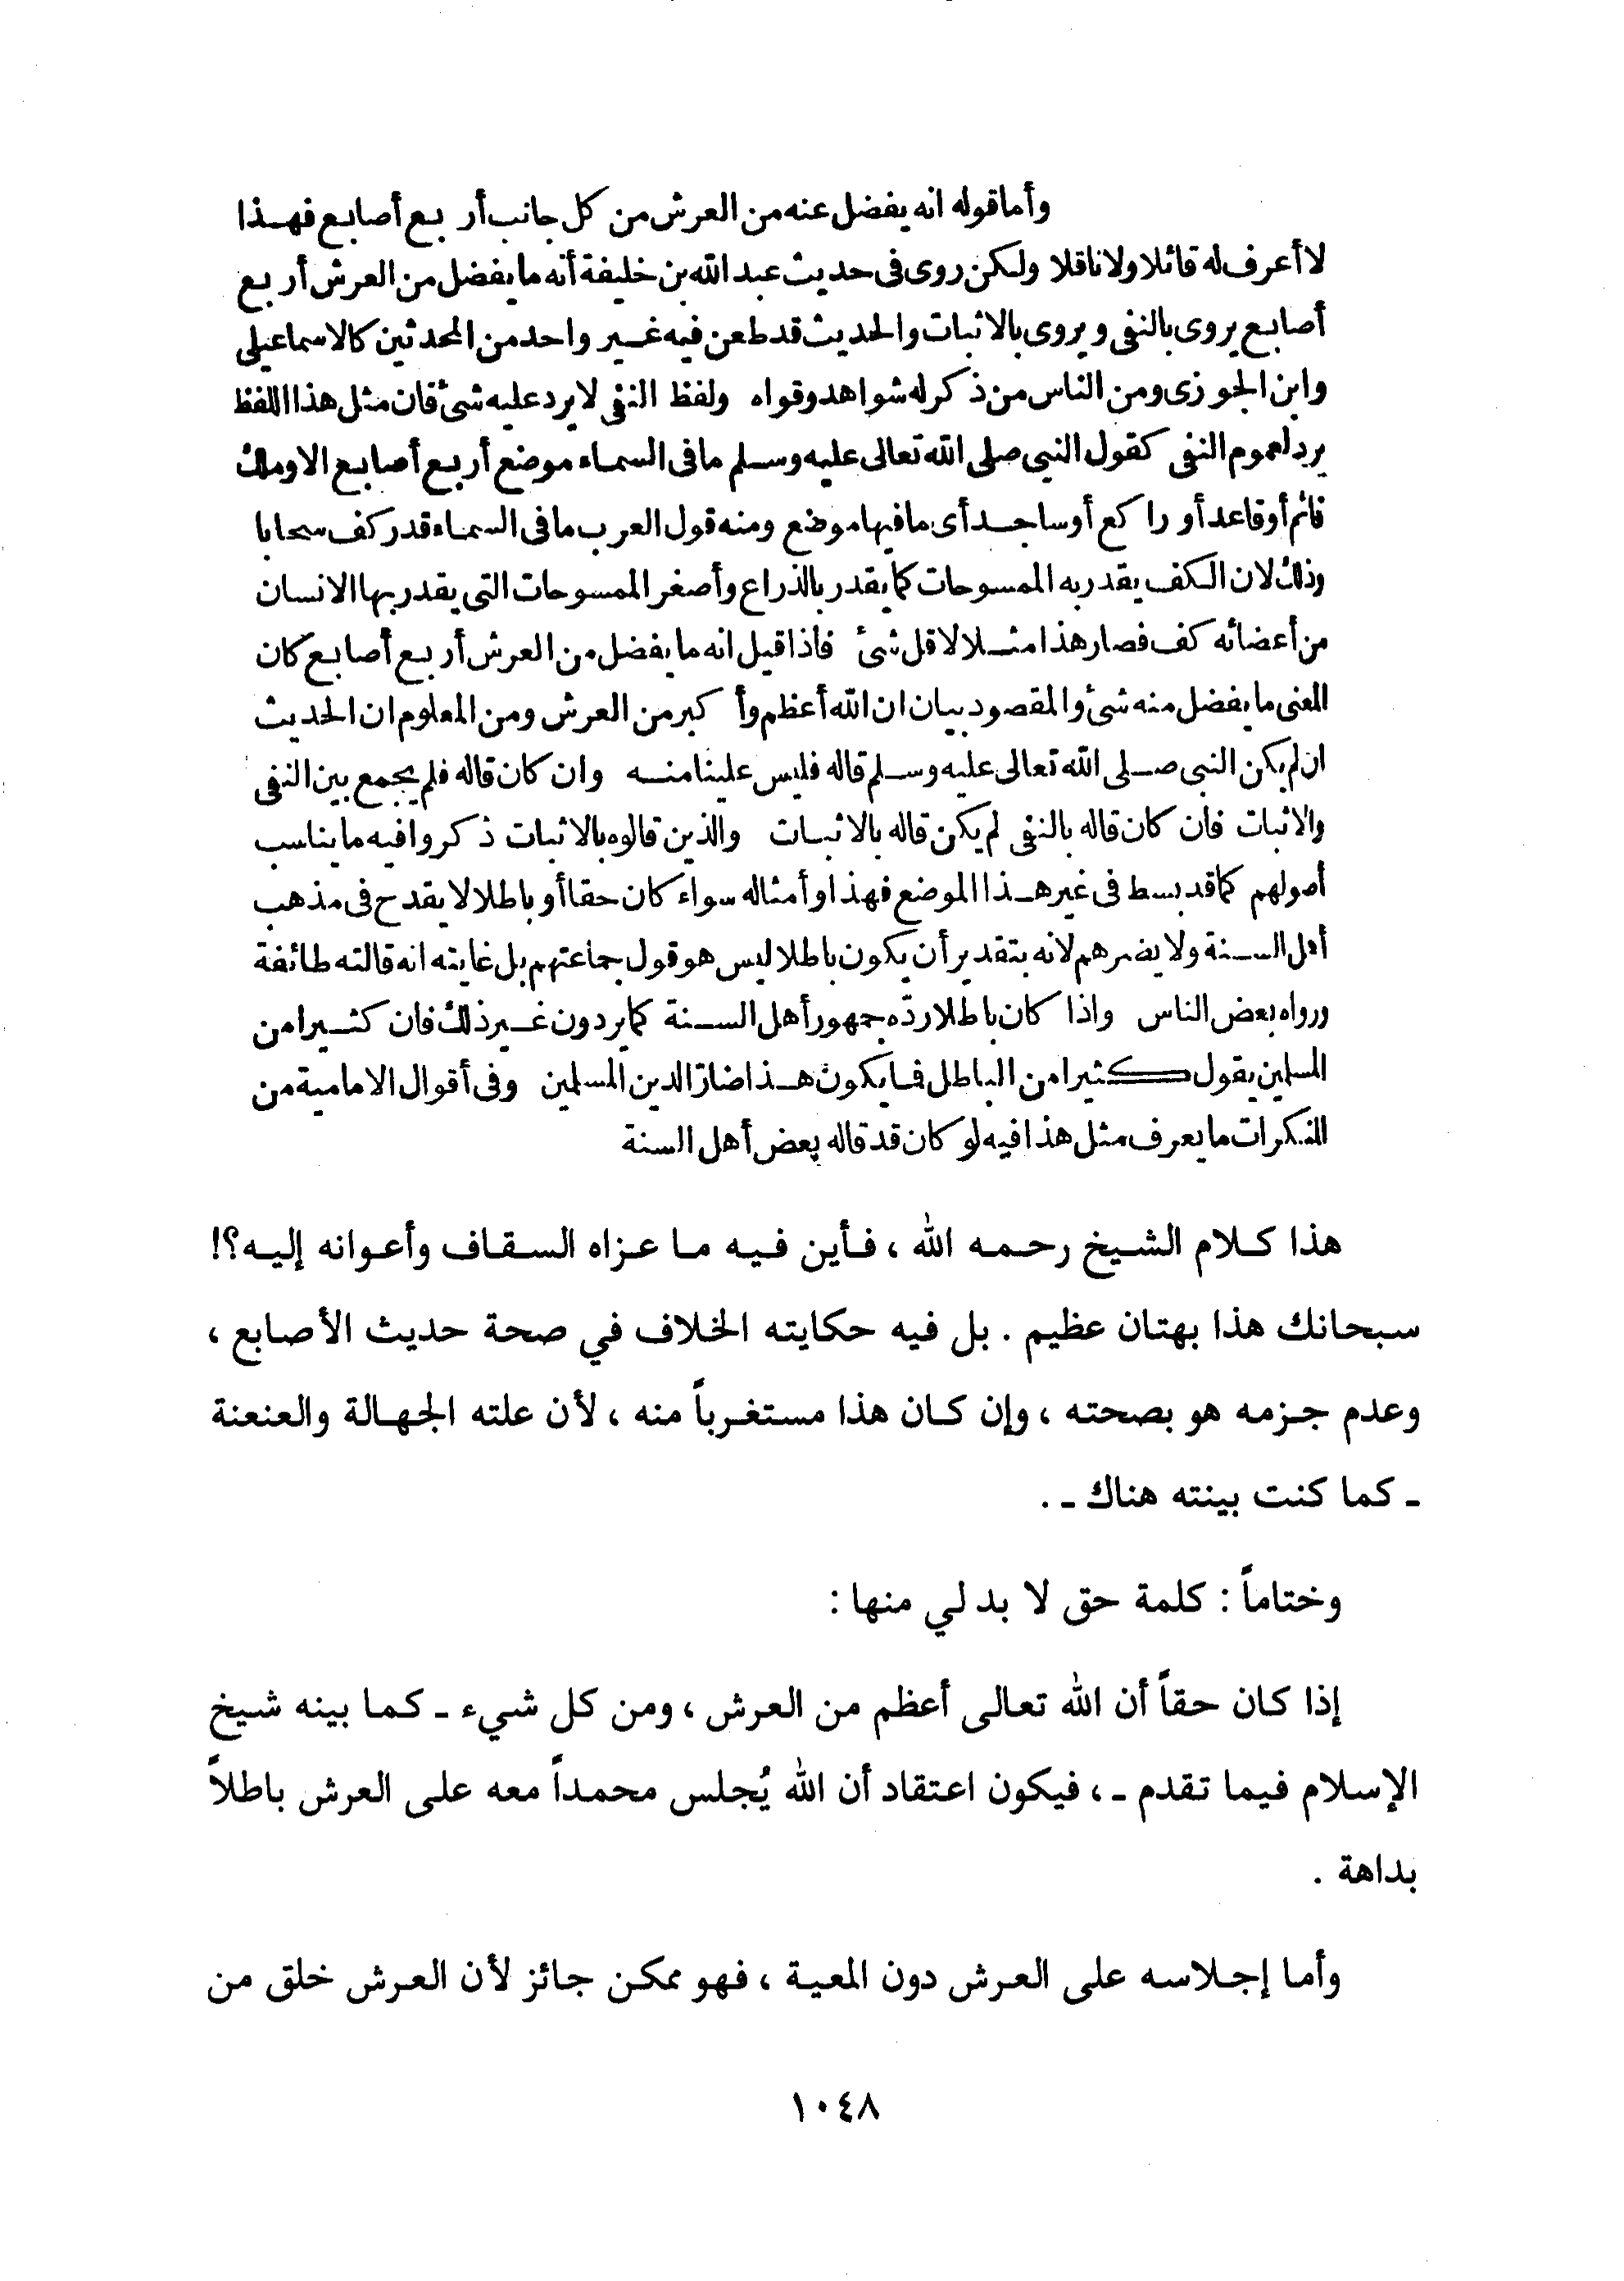 وأما قوله انه يفضل عنه من العرش من كل جانب أربع أصابع فهذا
لا أعرف له قائلا ولا ناقلا ولكن روى فى حديث عبد الله بن خليفة أنه ما يفضل من العرش أربع
أصابع يروى بالنفى ويروى بالاثبات والحديث قد طعن فيه غير واحد من المحدثين كالاسماعيلى
وابن الجوزى ومن الناس من ذكر له شواهد وقواه ولفظ النفى لا يرد عليه شئ فان مثل هذا اللفظ
يرد لعموم النفى كقول النبى صلى الله تعالى عليه وسلم ما فى السماء موضع أربع أصابع الا وملك
قائم أو قاعد أو راكع أو ساجد أى ما فيها موضع ومنه قول العرب ما فى السماء قدر كف سحابا
وذلك لان الكف يقدر به الممسوحات كما يقدر بالذراع وأصغر الممسوحات التى يقدر بها الانسان
من أعضائه كف فصار هذا مثلا لاقل شئ فاذا قيل انه ما يفضل من العرش أربع أصابع كان
المعنى ما يفضل منه شئ والمقصود بيان ان الله أعظم وأكبر من العرش ومن المعلوم ان الحديث
ان لم يكن النبى صلى الله تعالى عليه وسلم قاله فليس علينا منه وان كان قاله فلم يجمع بين النفى
والاثبات فان كان قاله بالنفى لم يكن قاله بالاثبات والذين قالوه بالاثبات ذكروا فيه ما يناسب
أصولهم كما قد بسط فى غير هذا الموضع فهذا وأمثاله سواء كان حقا أو باطلا لا يقدح فى مذهب
أهل السنة ولا يضرهم لانه بتقدير أن يكون باطلا ليس هو قول جماعتهم بل غايته انه قالته طائفة
ورواه بعض الناس واذا كان باطلا ردّه جمهور أهل السنة كما يردون غير ذلك فان كثيرا من
المسلمين يقول كثيرا من الباطل فما يكون هذا ضارّا لدين المسلمين وفى أقوال الامامية من
المنكرات ما يعرف مثل هذا فيه لو كان قد قاله بعض أهل السنة
هذا كلام الشيخ رحمه الله ، فأين فيه ما عزاه السقاف وأعوانه إليه؟!
سبحانك هذا بهتان عظيم . بل فيه حكايته الخلاف في صحة حديث الأصابع ،
وعدم جزمه هو بصحته ، وإن كان هذا مستغرباً منه ، لأن علته الجهالة والعنعنة
ـ كما كنت بينته هناك ـ .
وختاماً : كلمة حق لا بد لي منها :
إذا كان حقاً أن الله تعالى أعظم من العرش ، ومن كل شيء ـ كما بينه شيخ
الإسلام فيما تقدم ـ ، فيكون اعتقاد أن الله يُجلس محمداً معه على العرش باطلاً
بداهة .
وأما إجلاسه على العرش دون المعية ، فهو ممكن جائز لأن العرش خلق من
١٠٤٨